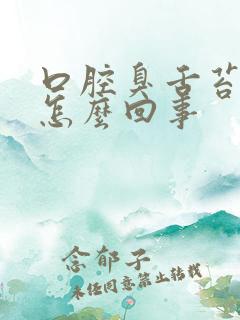 口腔臭舌苔
怎麽回事
念郁子
未经同意禁止转载